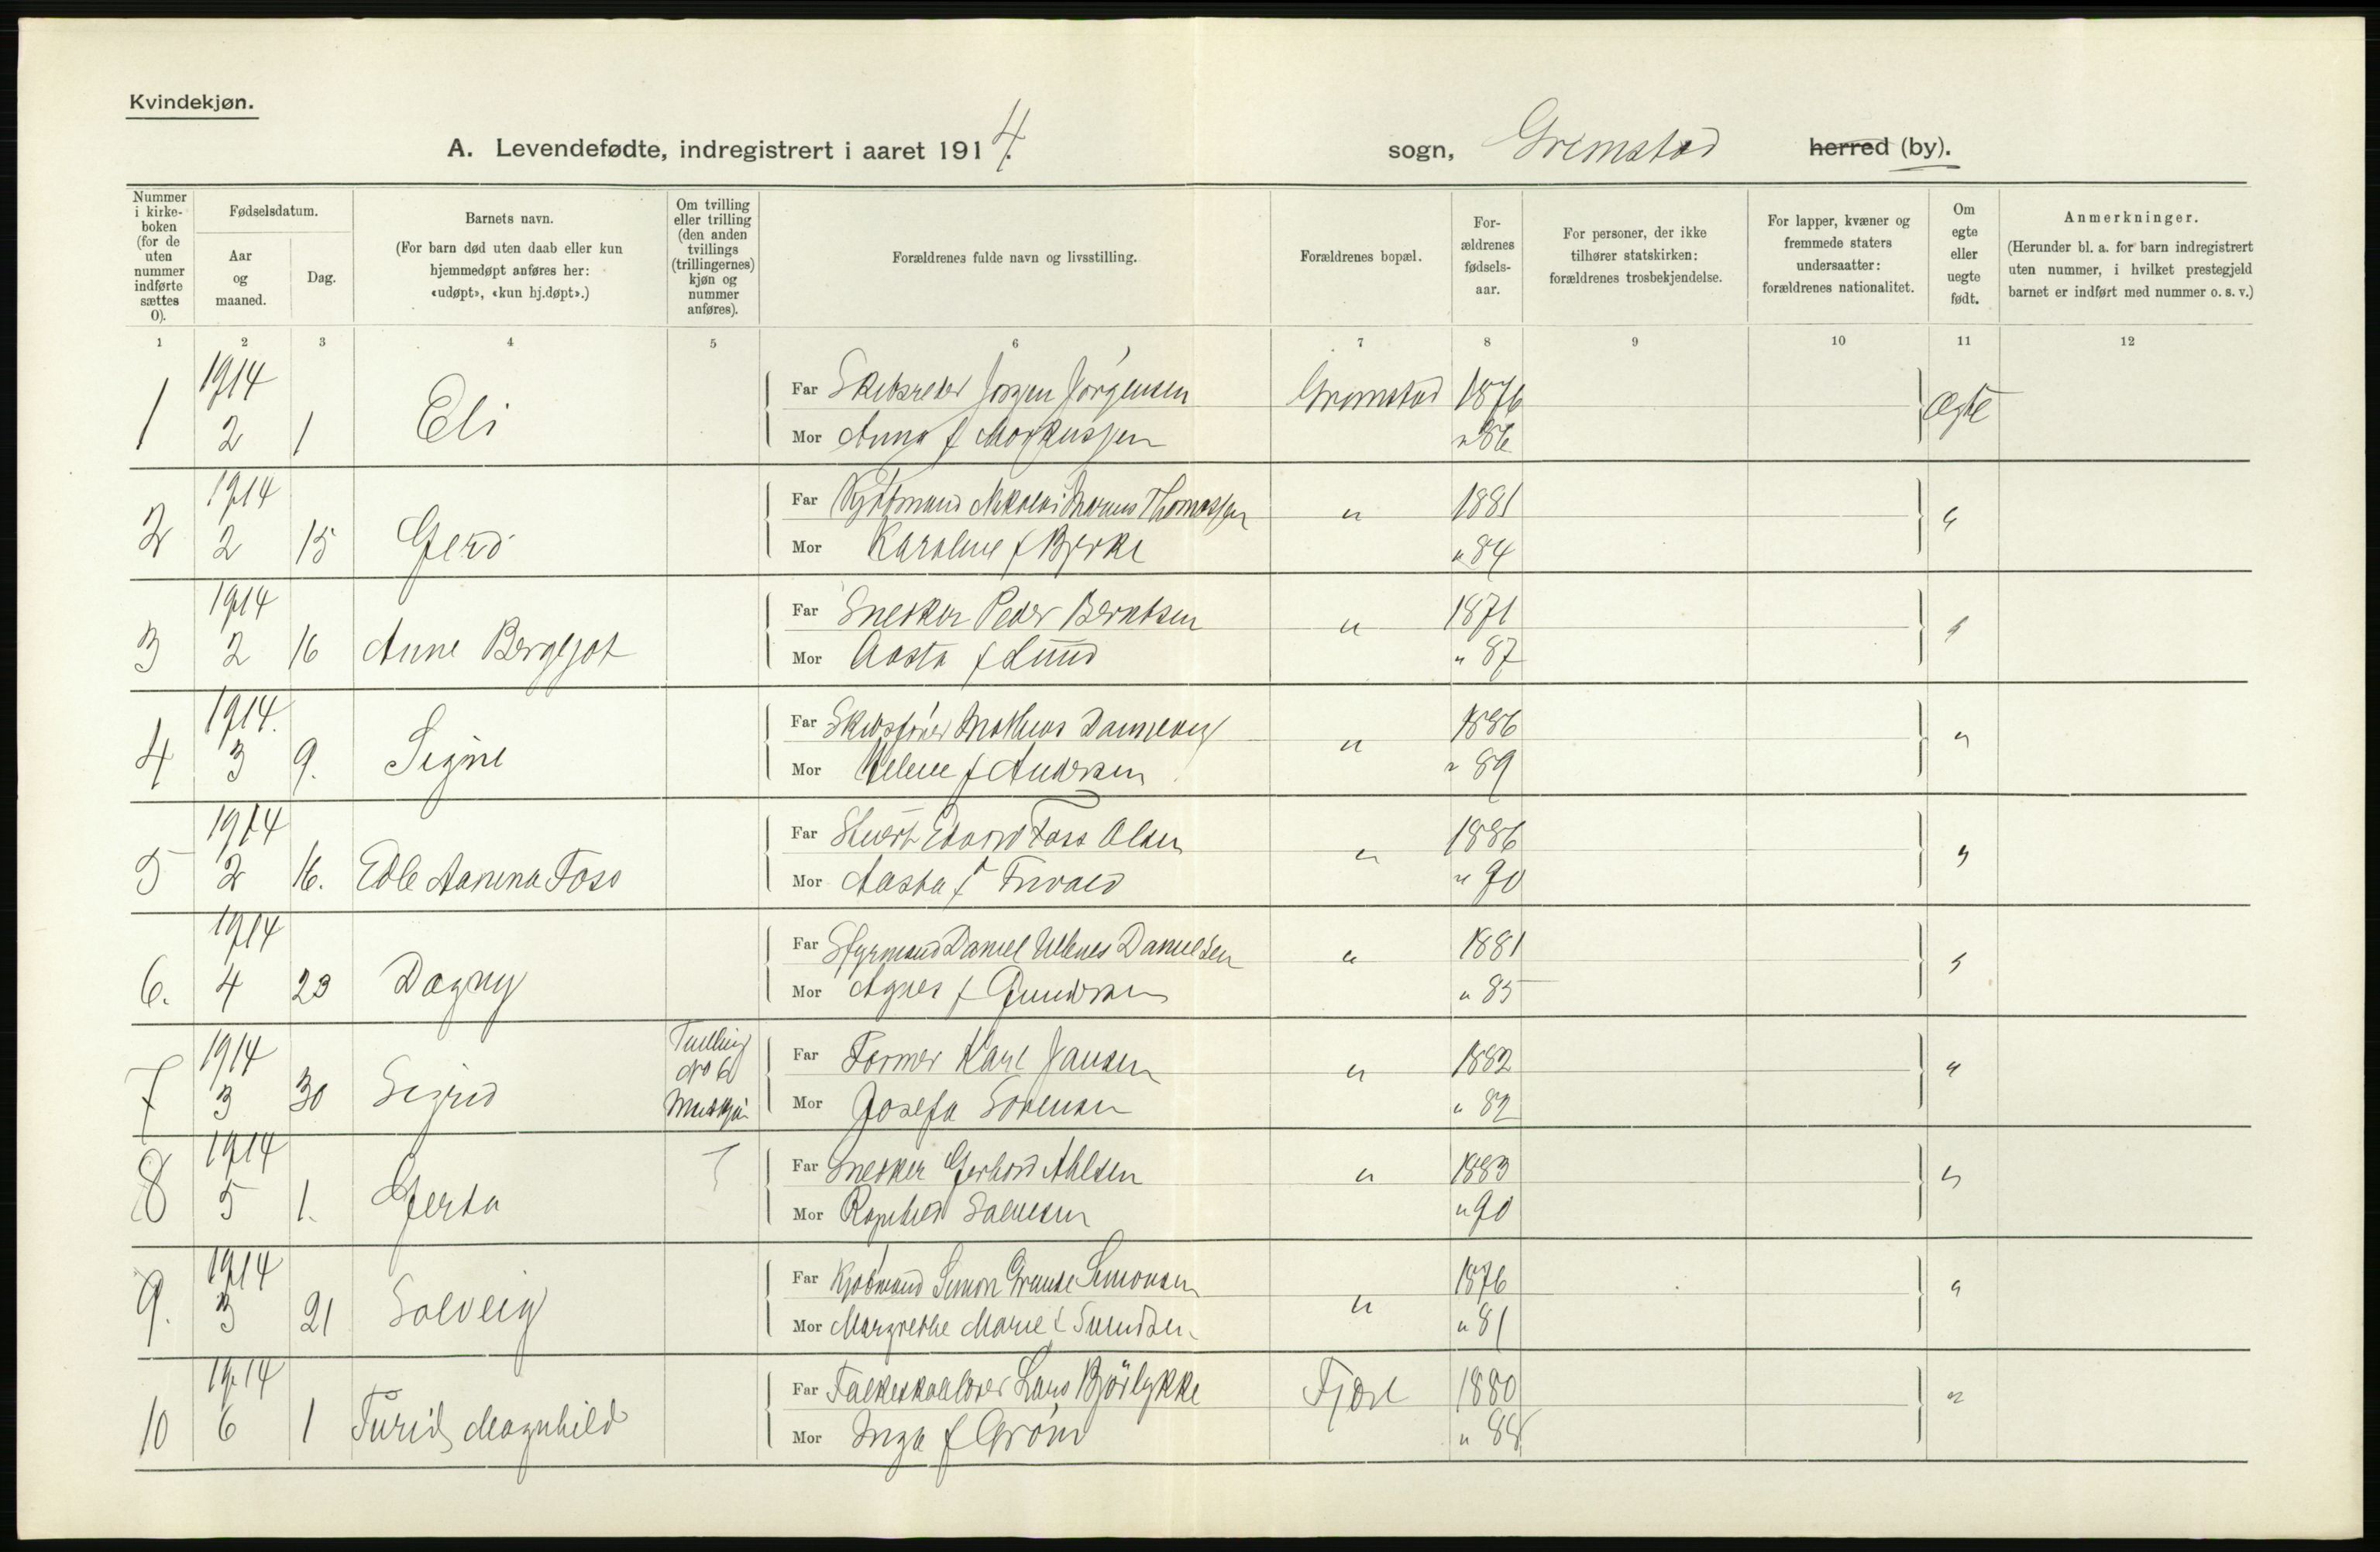 Kvindekjøn.
A. Levendefødte, indregistrert i aaret 1914.
sogn, Grimstad herred (by).
Nummer i kirke-boken (for de uten nummer indførte sættes 0).
Fødselsdatum.
Aar og maaned.
Dag.
Barnets navn.
(For barn død uten daab eller kun hjemmedøpt anføres her: «udøpt», «kun hj.døpt».)
Om tvilling eller trilling (den anden tvillings (trillingernes) kjøn og nummer anføres).
Forældrenes fulde navn og livsstilling.
Forældrenes bopæl.
For-ældrenes fødsels-aar.
For personer, der ikke tilhører statskirken: forældrenes trosbekjendelse.
For lapper, kvæner og fremmede staters undersaatter: forældrenes nationalitet.
Om egte eller uegte født.
Anmerkninger.
(Herunder bl. a. for barn indregistrert uten nummer, i hvilket prestegjeld barnet er indført med nummer o. s. v.)
1 2 3 4 5 6 7 8 9 10 11 12
1 1914 2 1 Eli
Far Skibsreder Jørgen Jørgensen Grimstad 1876 Ægte
Mor Anna f Markussen " 86
2 1914 2 15 Gerd
Far Kjøbmand Nikolai Marius Thomassen " 1881 "
Mor Karoline f Bjerke " 84
3 1914 2 16 Anne Bergljot
Far Snekker Peder Berntsen " 1871 "
Mor Aasta f Lund " 87
4 1914. 3 9. Signe
Far Skibsfører Mathias Dannevig " 1886 "
Mor Helene f Andersen " 89
5 1914 2 16. Edle Aanena Foss
Far Edvard Foss Olsen " 1886 "
Mor Aasta f " 90
6. 1914 4 23 Dagny
Far Styrmand Daniel Danielsen " 1881 "
Mor Agnes f Gundersen " 85
7 1914 3 30 Sigrid Tvilling No 6
Far Former Karl Jansen " 1882 "
Mor Josefa Sørensen " 82
8 1914 5 1. Gerta
Far Snekker Gerhard Ahlsen " 1883 "
Mor Ragnhild Salvesen " 90
9. 1914 3 21 Solveig
Far Kjøbmand Simon Simonsen " 1876 "
Mor Margrethe Marie f Svendsen " 81
10 1914 6 1 Turid Magnhild
Far Lars Bjørlykke Fjære 1880 "
Mor Inga f Grøm " 88